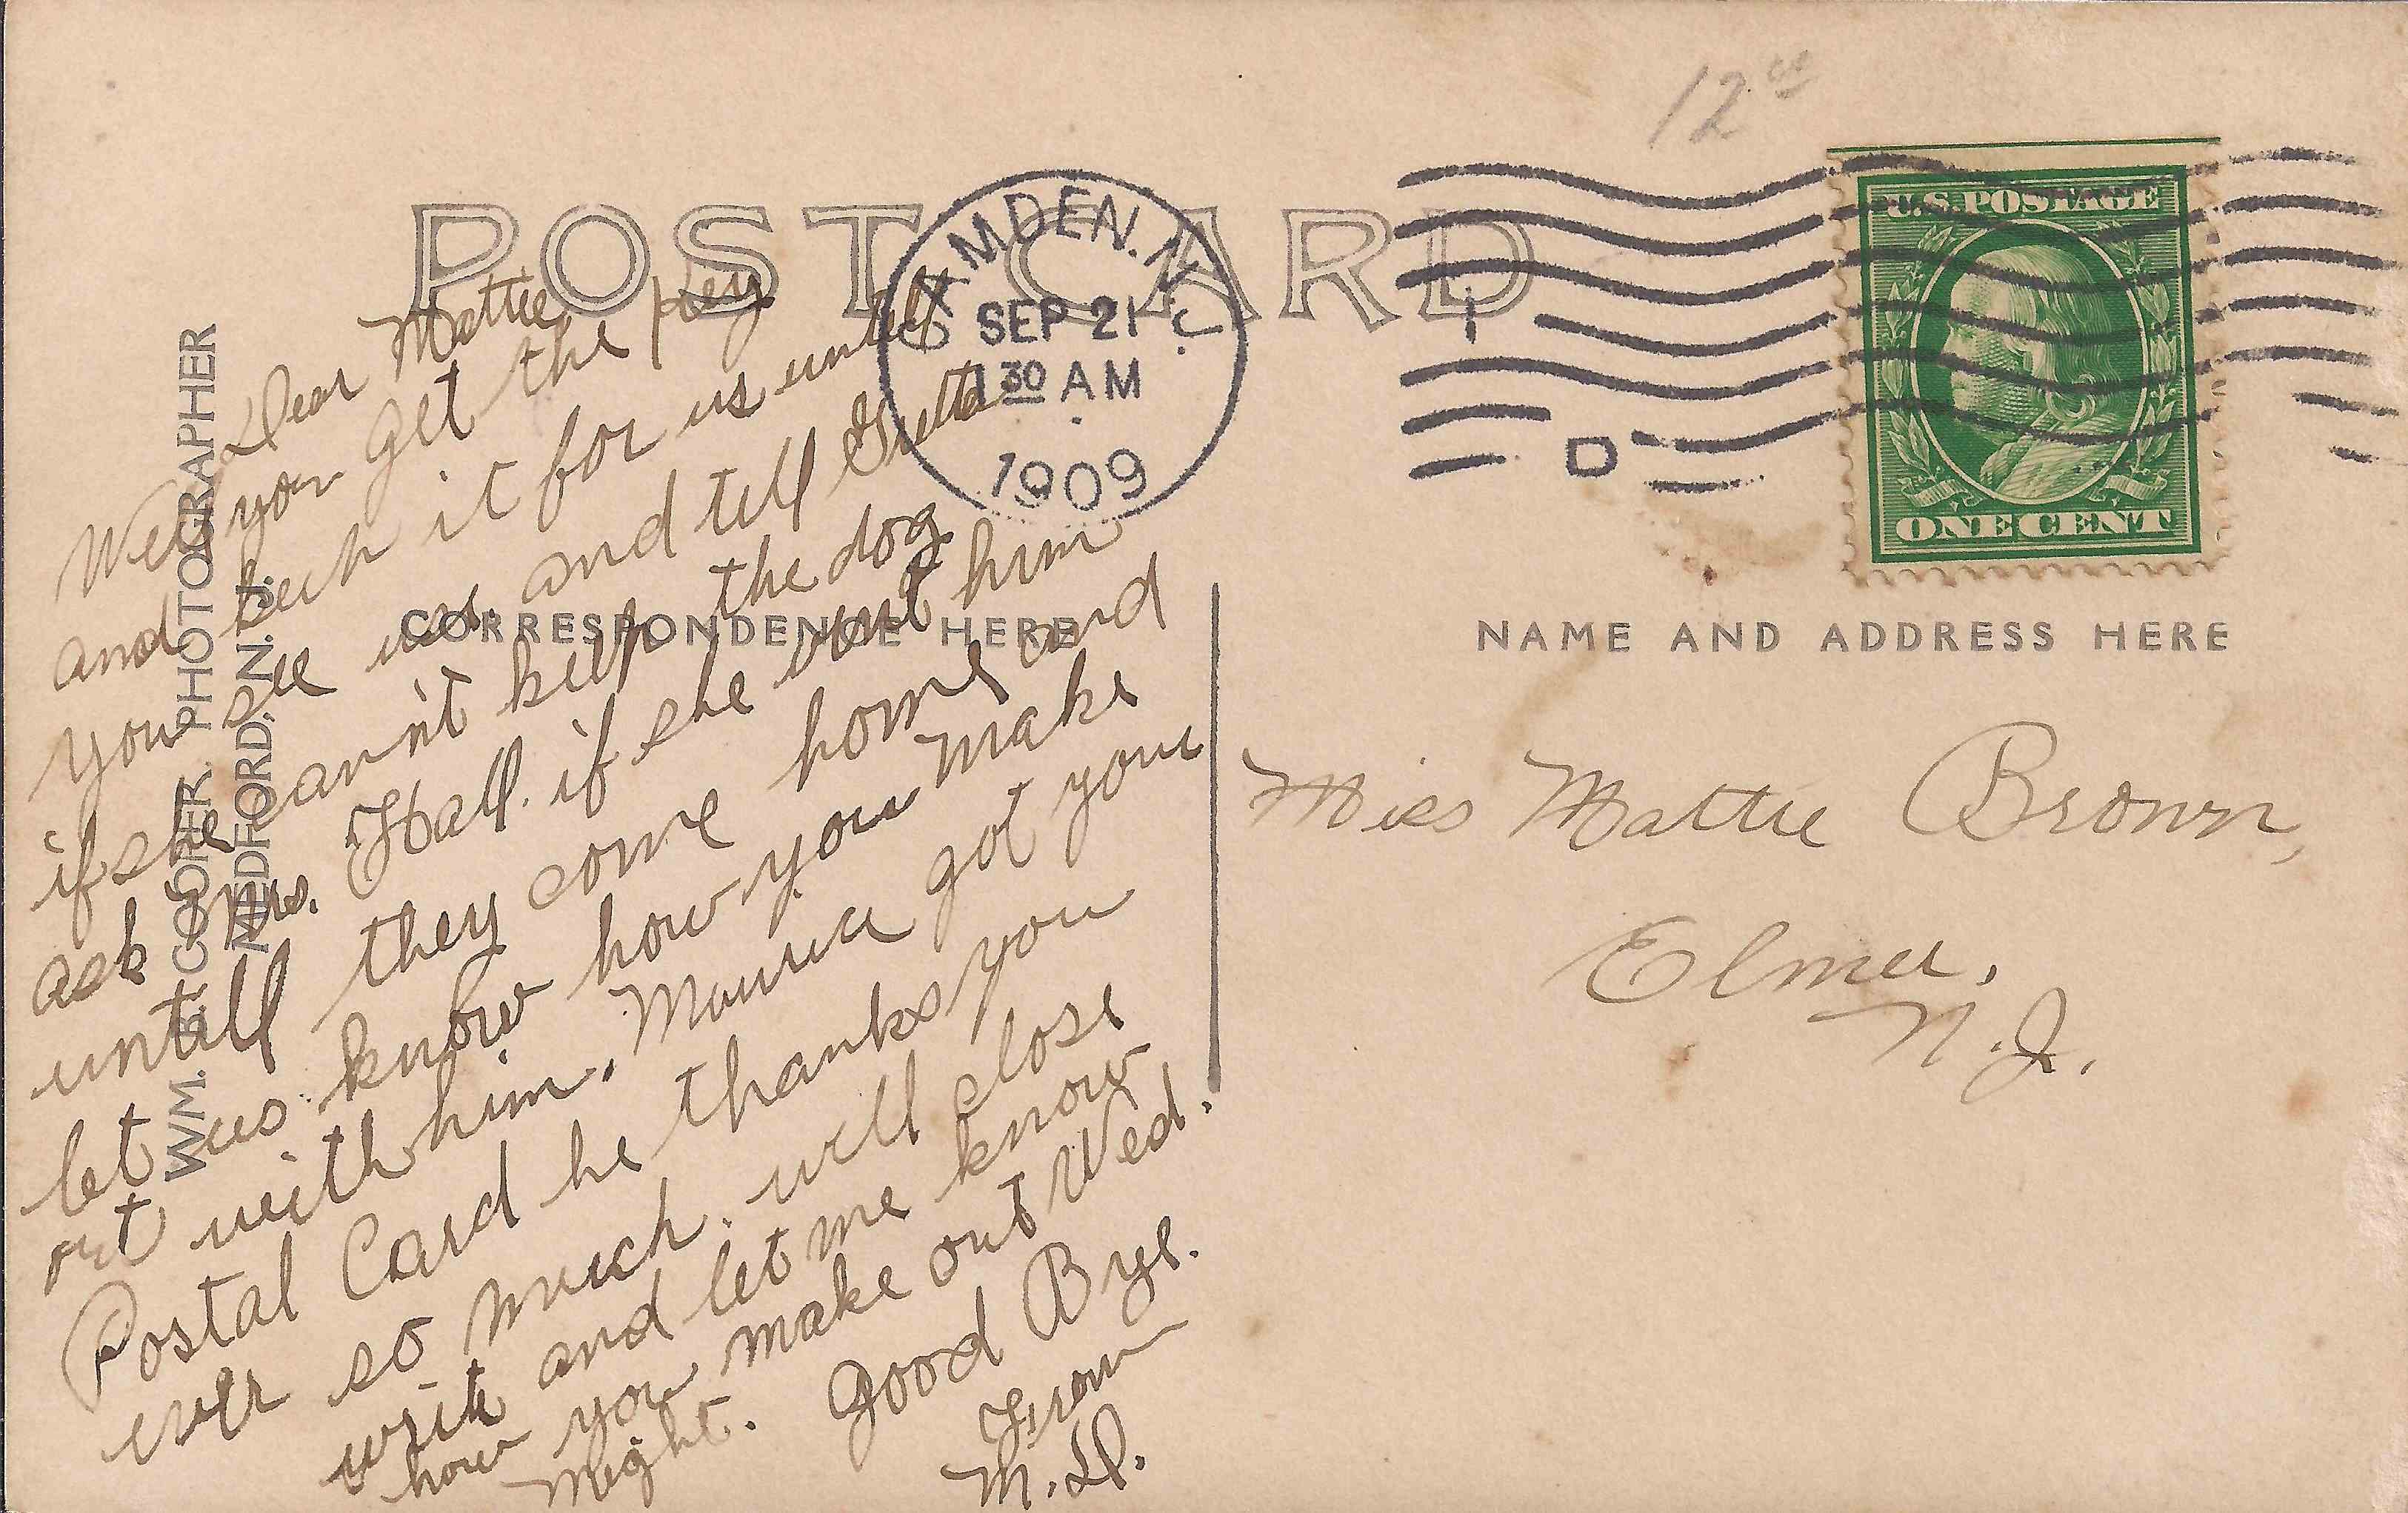 12
POST CARD
CAMDEN. N.J.
SEP 21
130 AM
1909
D
U.S. POSTAGE
ONE CENT
CORRESPONDENCE HERE
NAME AND ADDRESS HERE
WM. B. COOPER. PHOTOGRAPHER
MEDFORD. N. J.
Dear Mattie
Well you get the key
and keep it for us untill
you see us. and tell
if she can't keep the dog
ask Mrs. Hall. if she wont him
untill they come home and
let us know how you make
out with him. got your
Postal Card he thanks you
ever so much. will close
write and let me know
how you make out Wed.
Night. Good Bye.
From
M.D.
Miss Mattie Brown,
Elmer,
N.J.